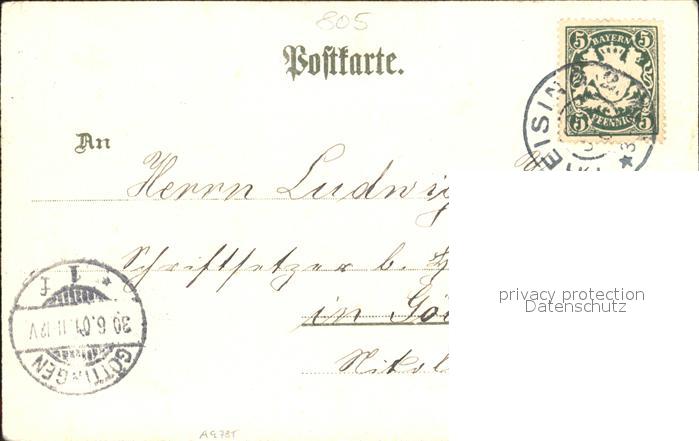 805
Postkarte.
5 BAYERN 5
5 PFENNIG 5
EISIN
An
Herrn Ludwig
Schriftsetzer b.
in Gö
Nikol
1 f
30.6.01.11-12V
GÖTTINGEN
privacy protection
Datenschutz